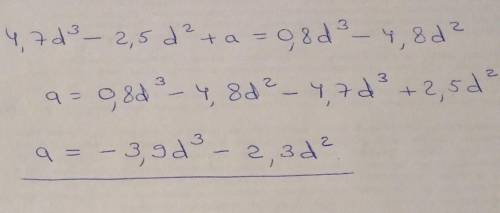 4,7d³ - 2,5d² + a = 0,8d³ - 4,8d²
a = 0,8d³ - 4,8d² - 4,7d³ + 2,5d²
a = - 3,9d³ - 2,3d²